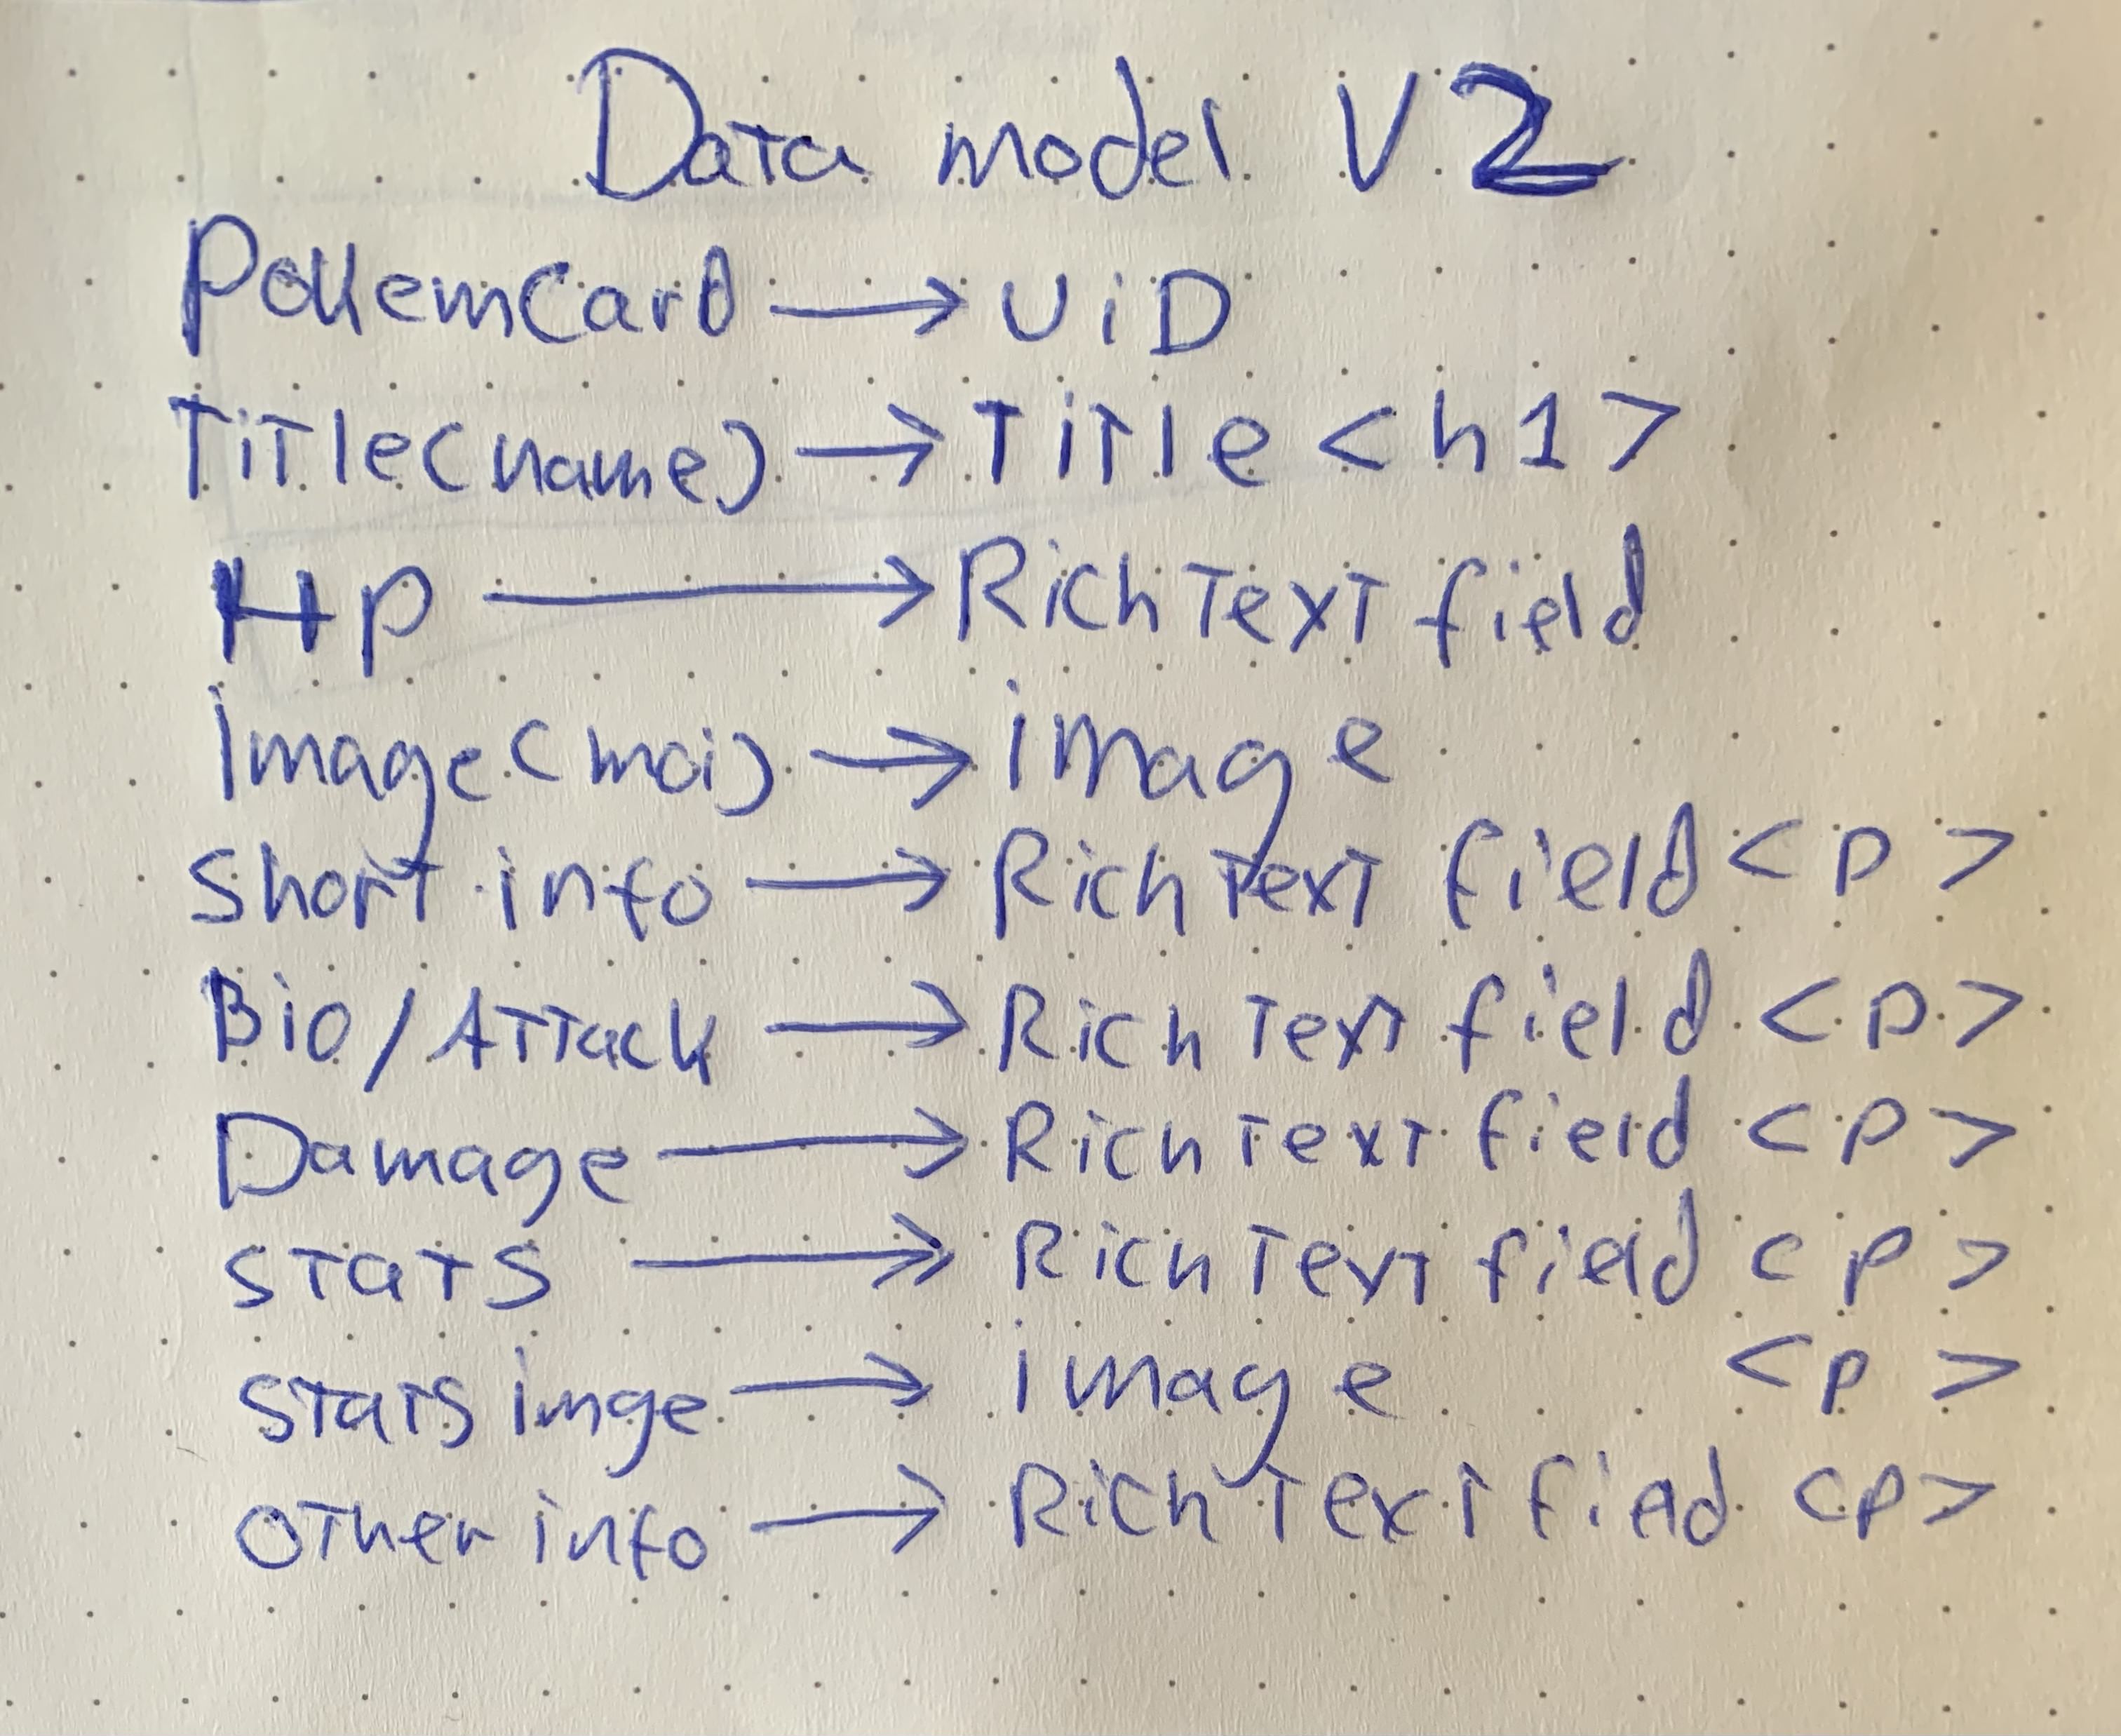 Data model V2
PokemCard → UiD
Title(name) → Title <h1>
Hp → Rich Text field
Image(mai) → image
Short info → Rich Text field <p>
Bio/Attack → Rich Text field <p>
Damage → Rich Text field <p>
Stats → Rich Text field <p>
Stats imge → image <p>
Other info → Rich Text field <p>